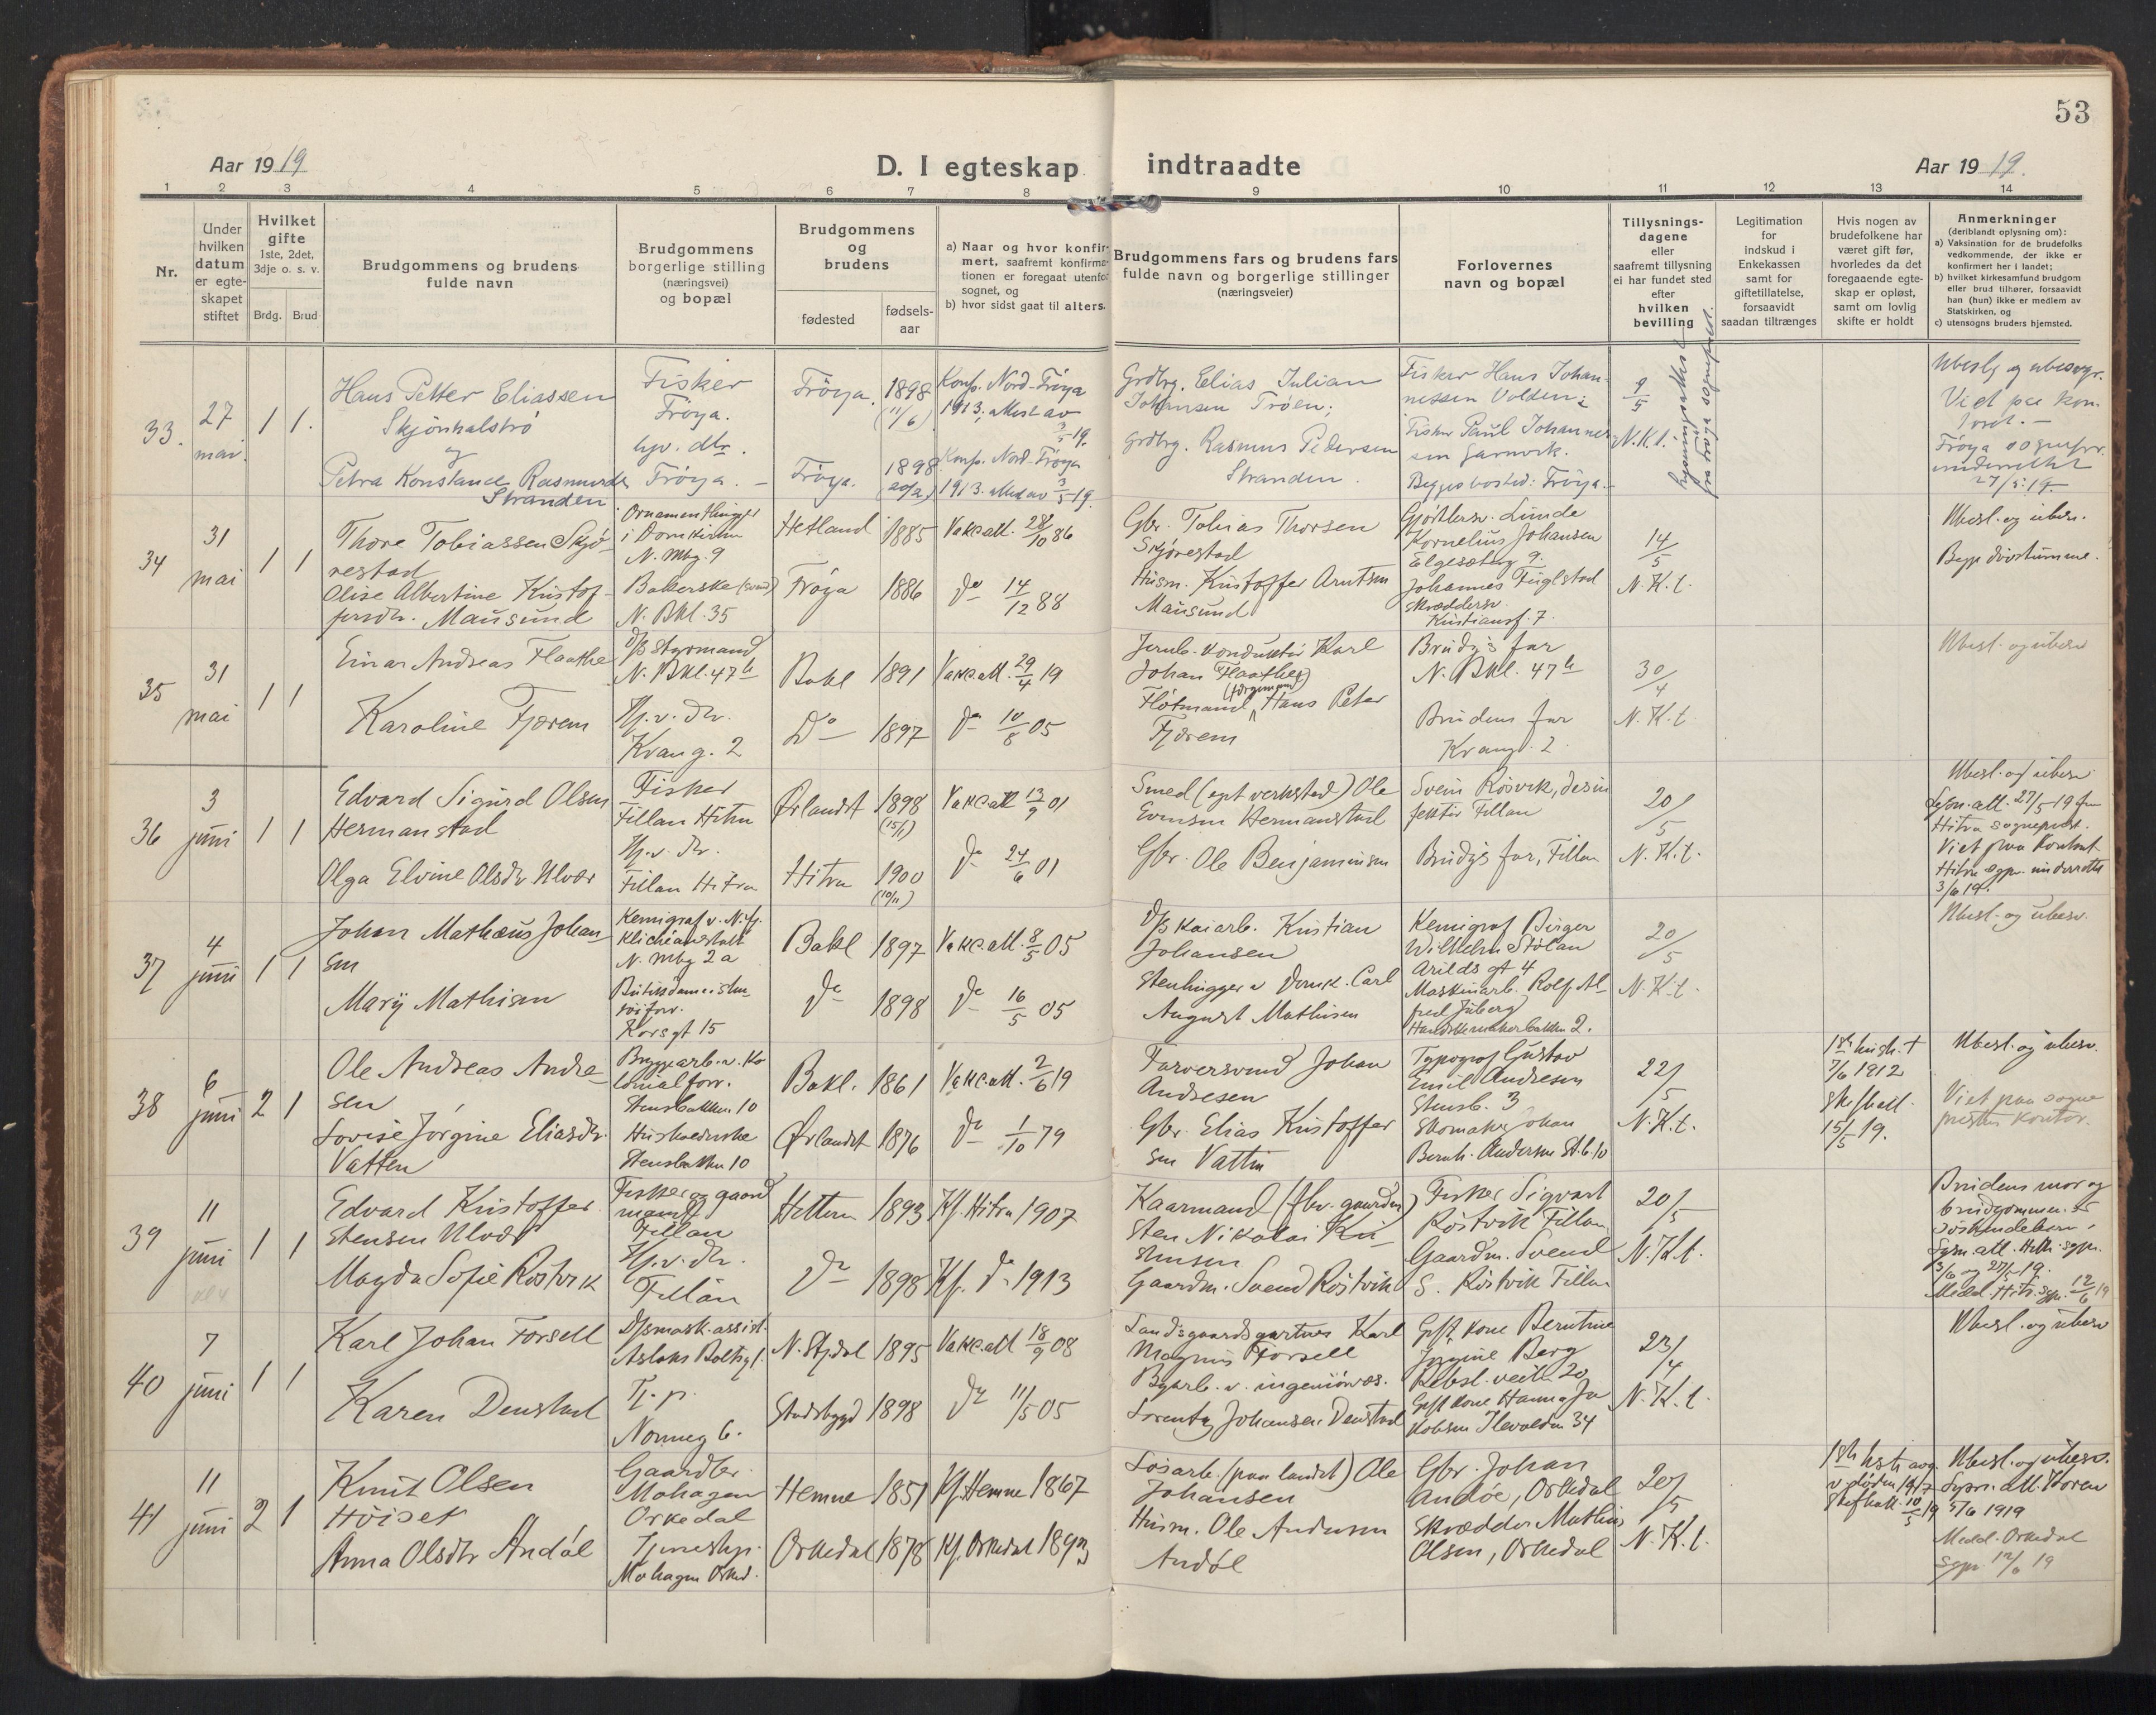 53
Aar 1919
D. I egteskap indtraadte
Aar 1919.
1 2 3 4 5 6 7 8 9 10 11 12 13 14
Nr.
Under hvilken datum er egte-skapet stiftet
Hvilket gifte 1ste, 2det, 3dje o. s. v.
Brdg. Brud
Brudgommens og brudens fulde navn
Brudgommens borgerlige stilling (næringsvei) og bopæl
Brudgommens og brudens
fødested
fødsels-aar
a) Naar og hvor konfir-mert, saafremt konfirma-tionen er foregaat utenfor sognet, og
b) hvor sidst gaat til alters.
Brudgommens fars og brudens fars fulde navn og borgerlige stillinger (næringsveier)
Forlovernes navn og bopæl
Tillysnings-dagene eller saafremt tillysning ei har fundet sted efter hvilken bevilling
Legitimation for indskud i Enkekassen samt for giftetillatelse, forsaavidt saadan tiltrænges
Hvis nogen av brudefolkene har været gift før, hvorledes da det foregaaende egte-skap er opløst, samt om lovlig skifte er holdt
Anmerkninger (deriblandt oplysning om):
a) Vaksination for de brudefolks vedkommende, der ikke er konfirmert her i landet;
b) hvilket kirkesamfund brudgom eller brud tilhører, forsaavidt han (hun) ikke er medlem av Statskirken, og
c) utensogns bruders hjemsted.
33. 27 mai. 1 1.
Hans Petter Eliassen
Skjönhalsströ
og
Petra Konstance Rasmusdr
Stranden
Fisker
Fröya.
Fröya. -
Fröya. 1898 (11/6)
Konf. Nord-Fröya
1913; attest av 3/5 19.
Fröya. 1898 (20/2)
Konf. Nord-Fröya
1913. attest av 3/5 19.
Grdbrg. Elias Julian
Johansen Tröen;
Grdbrg. Rasmus Pedersen
Stranden.
Fisker Hans Johan-
nessen Volden;
Fisker Paul Johannes-
sen
Begges bosted: Fröya.
9/5
N.K.t.
lysningsattest
fra Fröya sogneprest.
Ubesl. og ubesvogr.
Viet paa kon-
toret. -
Fröya sogneprr.
underrettet
27/5.19.
34 31 mai 1 1
Thore Tobiassen Skjö-
restad
Olise Albertine Kristof-
fersdr. Mausund
Ornamenthugger
i Domkirken
N. Mbg. 9
Bakerske
N. Bkl. 35
Hetland 1885 Vakc.att. 28/10 86
Fröya 1886 do 14/12 88
Gbr. Tobias Thorsen
Skjörestad
Husm. Kristoffer Arntsen
Mausund
Kornelius Johansen
Elgesæterg 9.
Johannes Fuglstad
skræddersv
Kristiansf. 7.
14/5
N.K.t.
Ubesl. og ubesv.
Begge dövstumme.
35 31 mai 1 1
Einar Andreas Flaathe
Karoline Fjærem
D/s styrmand
N. Bkl. 47 b
Hj. v. dr.
Kvang. 2
Bakl 1891 Vakc.att. 29/4 19
Do 1897 do 10/8 05
Jernb. konduktör Karl
Johan Flaathe
Flötmand (færgemand) Hans Peter
Fjærem
Brudgs far
N. Bkl. 47 b
Brudens far
Kvangr. 2.
30/4
N.K.t.
Ubesl. og ubesv
36 3 juni 1 1
Edvard Sigurd Olsen
Hermanstad
Olga Elvine Olsdr Ulvær
Fisker
Fillan Hitra
Hj. v. dr.
Fillan Hitra
Ørlandet 1898 (15/1) Vakc.att 13/9 01
Hitra 1900 (10/11) do 24/6 01
Smed (eget verksted) Ole
Evensen Hermanstad
Gbr. Ole Benjaminsen
Svein Rösvik, desin
fektör Fillan
Brudgs far, Fillan
20/5
N.K.t.
Ubesl. og ubesv.
Lysn. att. 27/5 19 fra
Hitra sogneprest.
Viet paa kontoret
Hitra sgpr. underrettet
3/6 19.
37 4 juni 1 1
Johan Mathæus Johan-
sen
Mary Mathisen
Kemigraf v. N.fj.
Klichéanstalt
N. Mbg 2 a
Korsgt 15
Bakl 1897 Vakc.att. 8/5 05
do 1898 do 16/5 05
D/s kaiarb. Kristian
Johansen
Stenhugger v Domk. Carl
August Mathisen
Kemigraf Birger
Wilhelm Stölan
Arilds gt 4
Maskinarb. Rolf Al-
fred Juberg
Hanskemakerbakken 2.
20/5
N.K.t.
Ubesl. og ubesv.
38 6 juni 2 1
Ole Andreas Andre-
sen
Lovise Jörgine Eliasdr.
Vatten
Bryggarb. v. Ko
lonialforr.
Stensbakken 10
Husholderske
Stensbakken 10
Bakl. 1861 Vakc.att. 2/6 19
Ørlandet 1876 do 1/10 79
Farversvend Johan
Andresen
Gbr. Elias Kristoffer
sen Vatten
Typograf Gustav
Emil Andresen
Stensb. 3
Skomaker Johan
Bernh. Andersen St.b. 10
22/5
N.K.t.
1ste hustr. †
7/6 1912
Skifteatt.
15/5 19.
Ubesl. og ubesv.
Viet paa sogne
prestens kontor.
39 11 juni 1 1
Edvard Kristoffer
Stensen Ulvær
Magda Sofie Röstvik
Fisker og gaard
mand
Fillan
Hj. v. dr.
Fillan
Hittern 1893 Kf. Hitra 1907
do 1898 Kf. do 1913
Kaarmand (fhv. gaardm)
Sten Nikolai Kri
stensen
Gaardm. Svend Röstvik
Fisker Sigvart
Röstvik Fillan
Gaardm. Svend
S. Röstvik Fillan
20/5
N.K.t.
Brudens mor og
brudgommen er
söskendebarn.
Lysn. att. Hitr. sgpr.
3/6 og 27/5 19.
Medd. Hitr. sgpr. 12/6 19
40 7 juni 1 1
Karl Johan Forsell
Karen Denstad
D/s mask. assist.
Aslaks Boltsgt.
Tj. p.
Nonneg 6.
N. Stjdal 1895 Vakc.att 18/9 08
Stadsbygd 1898 do 11/5 05
Karl
Magnus Forsell
Byarb. v. ingeniörvæs.
Lorentz Johansen Denstad
Gift kone Berntine
Jörgine Berg
Rebsl. veita 20
Gift kone Hanna Ja
kobsen Ilevolden 34
23/4
N.K.t.
Ubesl. og ubesv
41 11 juni 2 1
Knut Olsen
Höiset
Anna Olsdtr Andöl
Gaardbr.
Mohagen
Orkedal
Tjenestep.
Mohagen Orked.
Hemne 1851 Kf. Hemne 1867
Orkedal 1878 Kf. Orkedal 1893
Lösarb. (paa landet) Ole
Johansen
Husm. Ole Andersen
Andöl
Gbr. Johan
Andöl, Orkedal
Skrædder Mathias
Olsen, Orkedal
20/5
N.K.t.
1ste egtesk. avg.
v. döden 1917
Skifteatt. 10/5 19
Ubesl. og ubesv.
Lysn. att.
5/6 1919
Medd. Orkedal
Sgpr 12/6 19